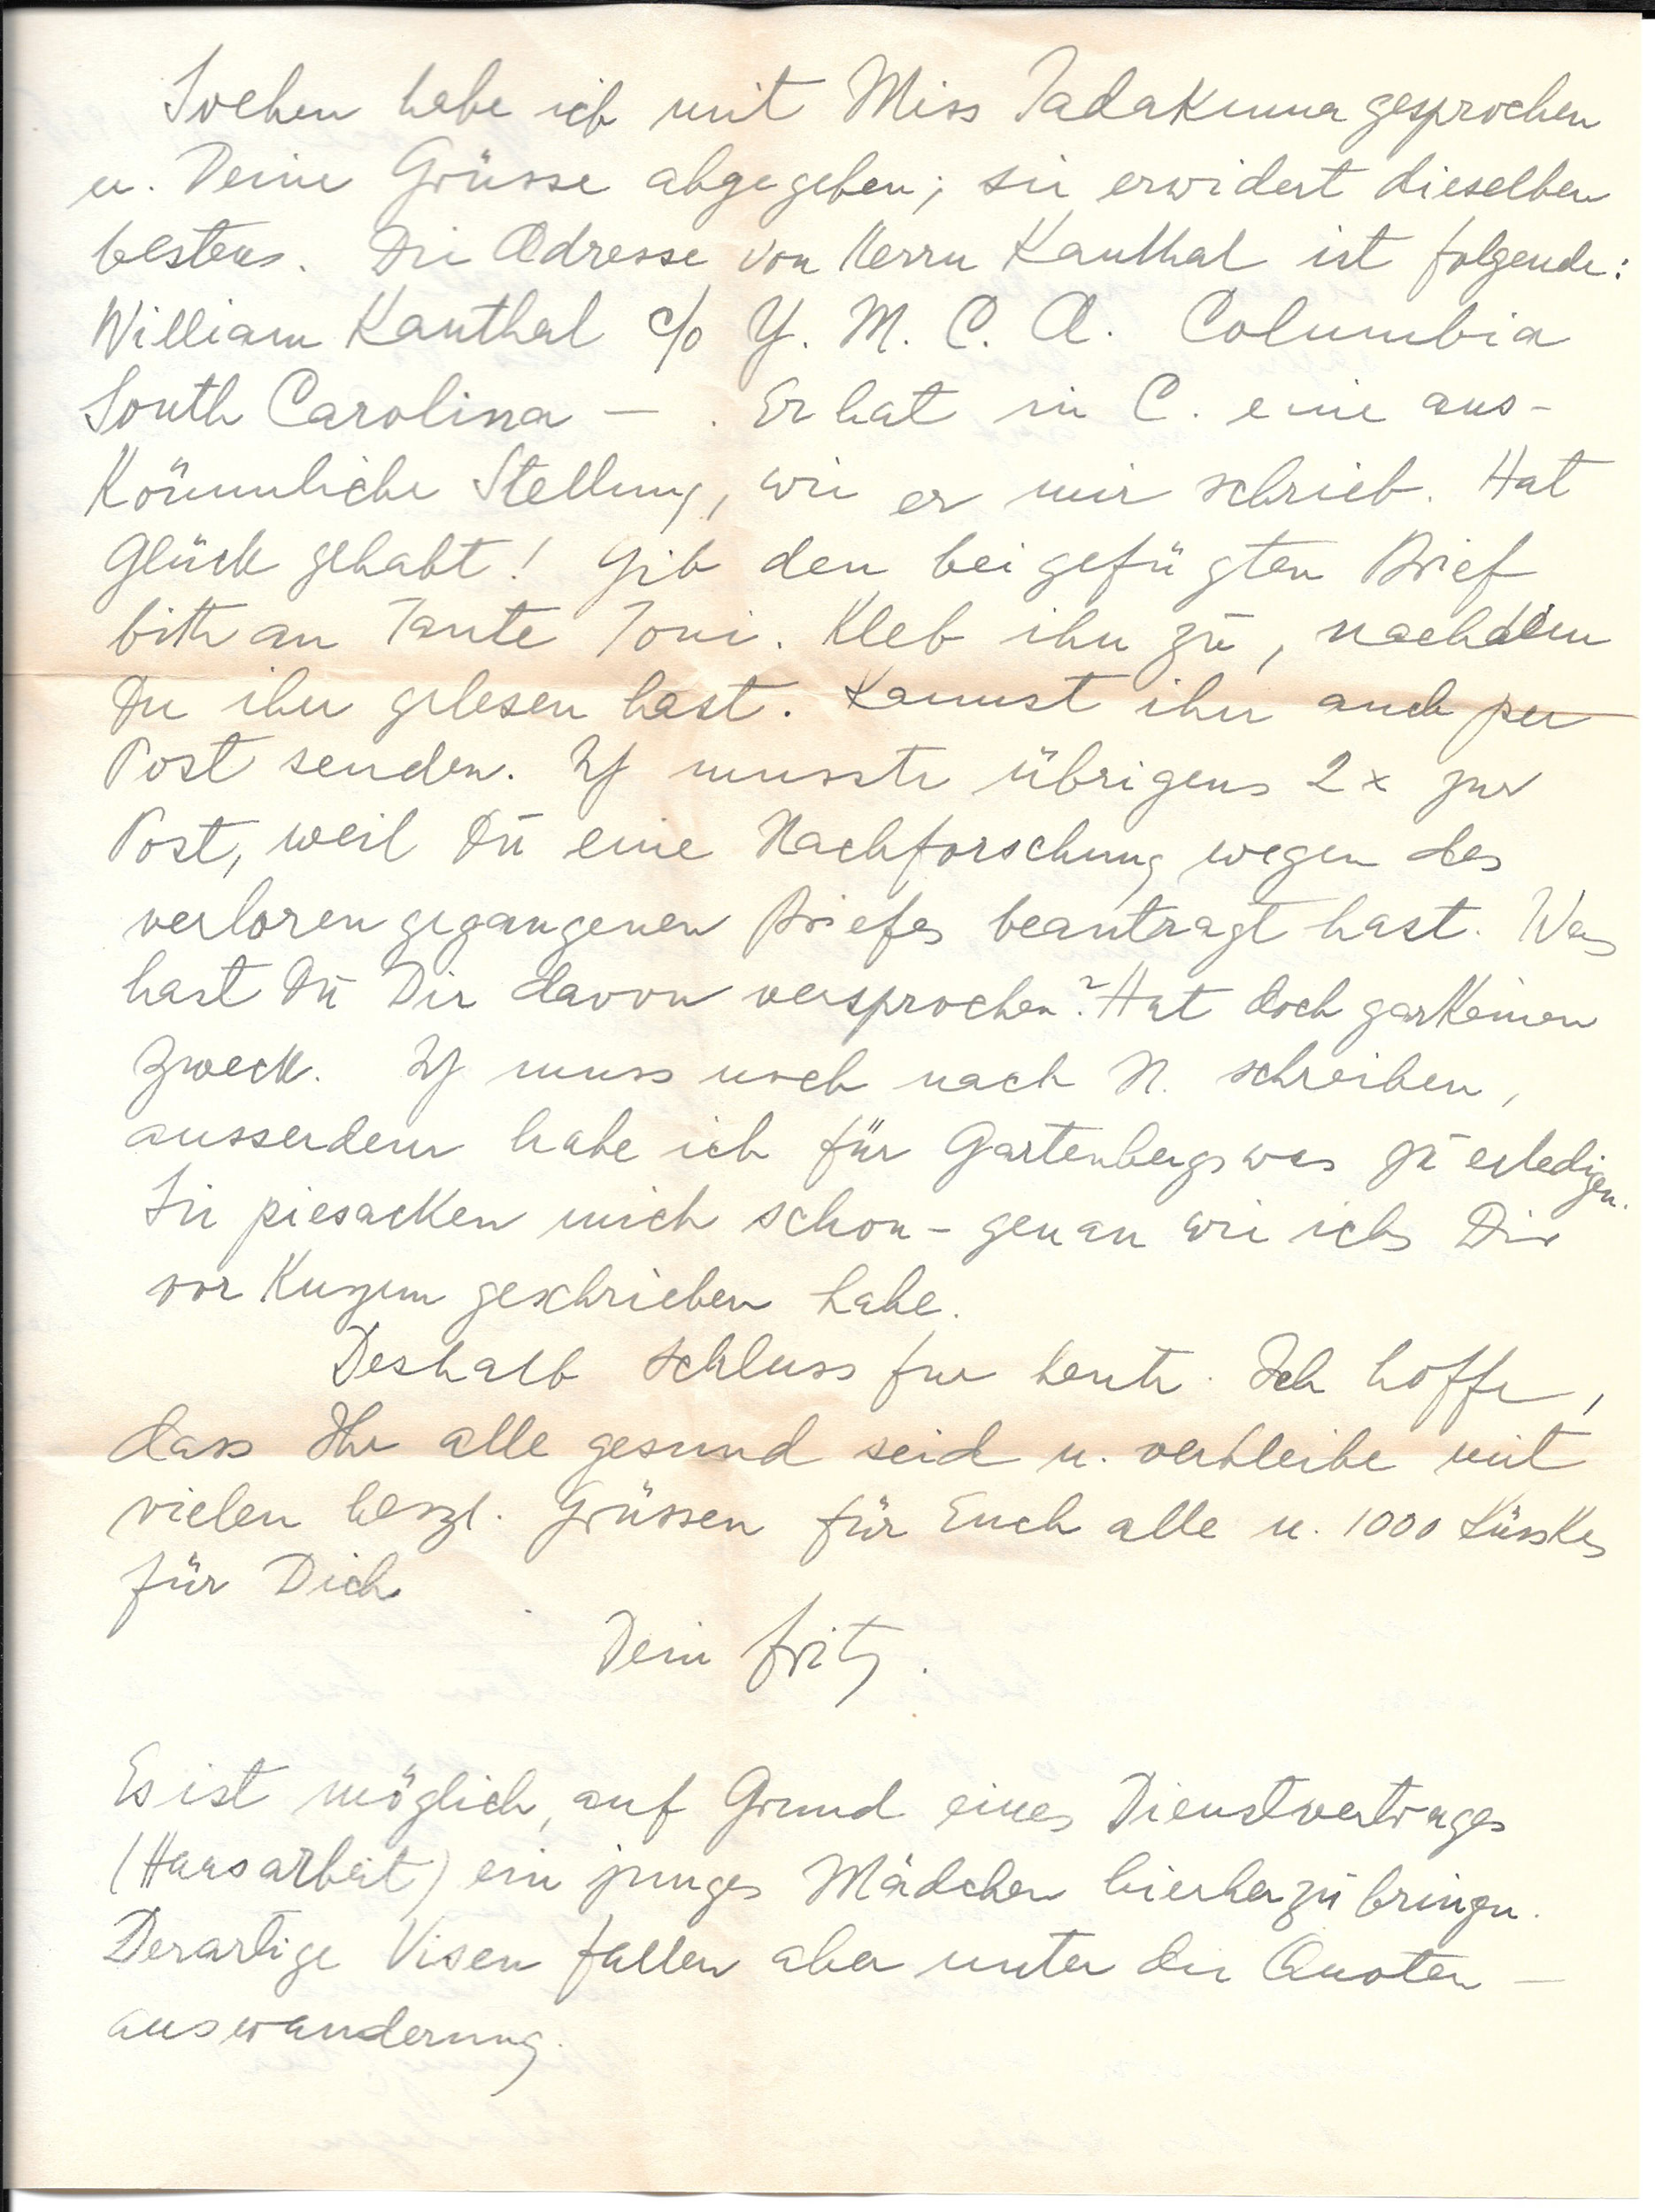 Soeben habe ich mit Miss Tadakuma gesprochen
u. Deine Grüsse abgegeben; sie erwidert dieselben
bestens. Die Adresse von Herrn Kanthal ist folgende:
William Kanthal c/o Y. M. C. A. Columbia
South Carolina — . Er hat in C. eine aus-
kömmliche Stellung, wie er mir schrieb. Hat
Glück gehabt! Gib den beigefügten Brief
bitte an Tante Toni. Kleb ihn zu, nachdem
Du ihn gelesen hast. Kannst ihn auch per
Post senden. Ich musste übrigens 2x zur
Post, weil Du eine Nachforschung wegen des
verloren gegangenen Briefes beantragt hast. Was
hast Du Dir davon versprochen? Hat doch garkeinen
Zweck. Ich muss noch nach N. schreiben,
ausserdem habe ich für Gartenbergs was zu erledigen.
Sie piesacken mich schon - genau wie ichs Dir
vor Kurzem geschrieben habe.
Deshalb Schluss für heute. Ich hoffe,
dass Ihr alle gesund seid u. verbleibe mit
vielen herzl. Grüssen für Euch alle u. 1000 Küsskes
für Dich
Dein Fritz.
Es ist möglich, auf Grund eines Dienstvertrages
(Hausarbeit) ein junges Mädchen hierher zu bringen.
Derartige Visen fallen aber unter die Quoten-
auswanderung.